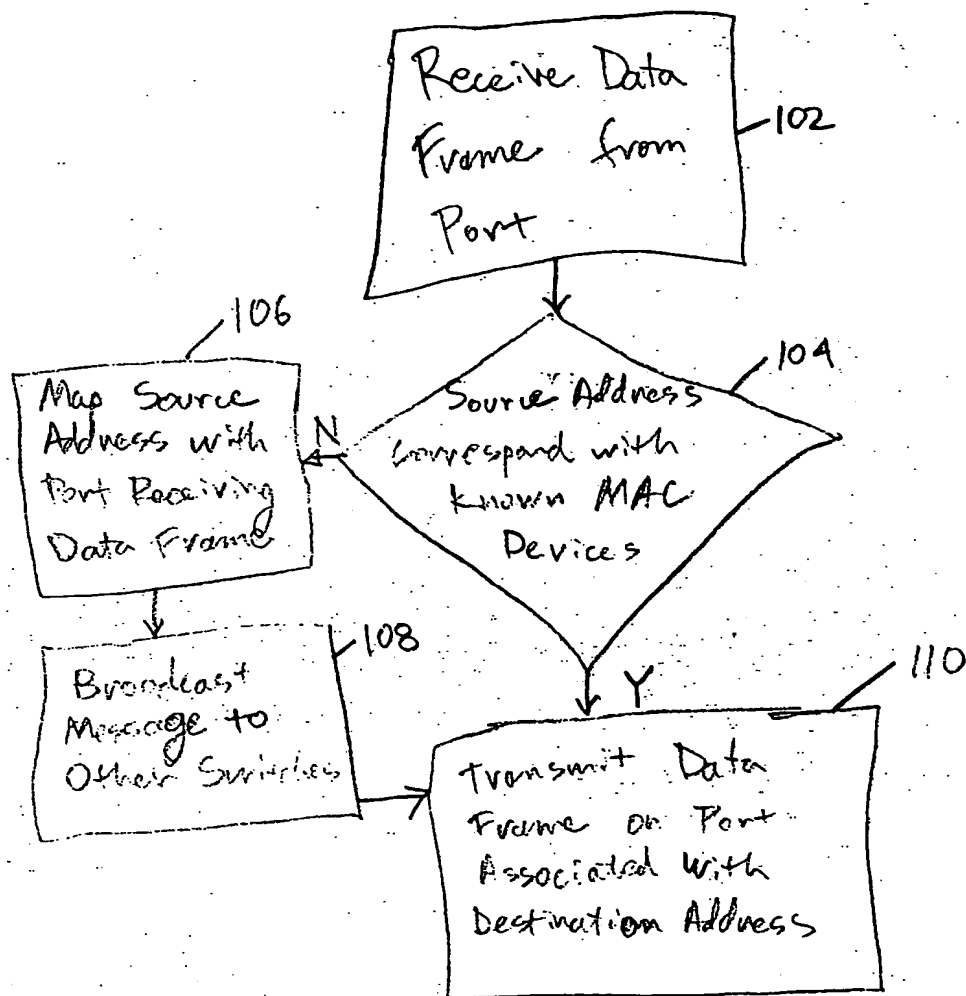 Receive Data
Frame from
Port
102
106
104
Map Source
Address with
Port Receiving
Data Frame
N
Source Address
correspond with
known MAC
Devices
108
Broadcast
Message to
Other Switches
Y
110
Transmit Data
Frame on Port
Associated with
Destination Address